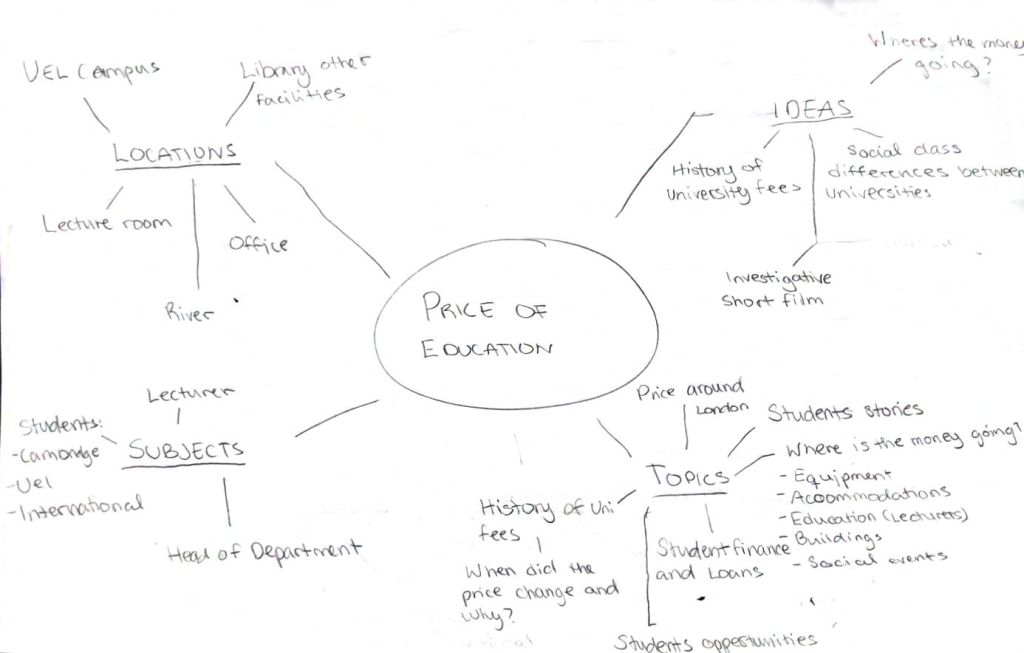 UEL Campus
Library other
facilities
LOCATIONS
Lecture room
Office
River
Wheres the money
going?
IDEAS
History of
university fees
Social class
differences between
universities
Investigative
short film
PRICE OF
EDUCATION
Lecturer
Students:
SUBJECTS
-Camondge
-Uel
-International
Head of Department
Price around
London
Students stories
Where is the money going?
TOPICS
- Equipment
- Accommodations
- Education (Lecturers)
- Buildings
- Social events
History of Uni
fees
Student finance
and Loans
When did the
price change and
why?
Students oppertunities